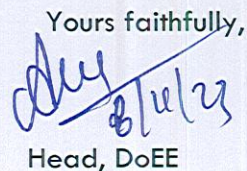 Yours faithfully,
8/11/23
Head, DoEE